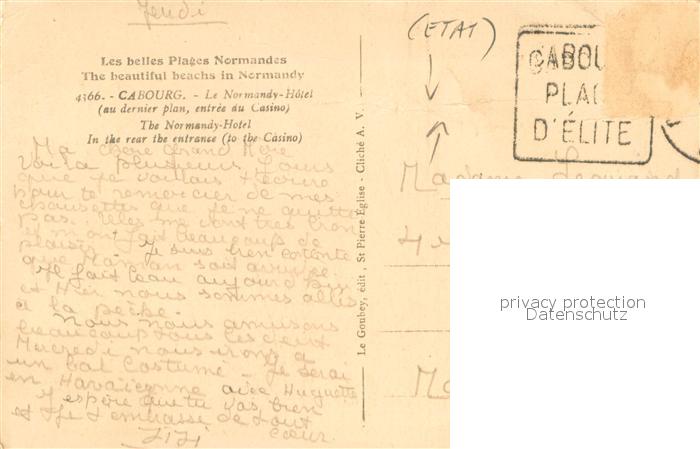 Jeudi
(ETAT)
Les belles Plages Normandes
The beautiful beachs in Normandy
4366. - CABOURG. - Le Normandy-Hôtel
(au dernier plan, entrée du Casino)
The Normandy-Hotel
In the rear the entrance (to the Casino)
CABOU
PLA
D'ÉLITE
Ma chère Grand Mère
Voila plusieurs jours
que je voulais t'écrire
pour te remercier de mes
chaussettes que je ne quitte
pas. Elles me vont très bien
et m'ont fait beaucoup de
plaisir. Je suis bien contente
que Maman soit arrivée.
Il fait beau aujourd'hui
et Hier nous sommes allés
à la pêche.
Nous nous amusons
beaucoup tous les deux
Mercredi nous irons à
un bal Costumé - Je serai
en Havaïenne avec Huguette
J'espère que tu vas bien
et je t'embrasse de tout
cœur.
Zizi
Le Goubey, édit., St Pierre Église - Cliché A. V.
Madame
privacy protection
Datenschutz